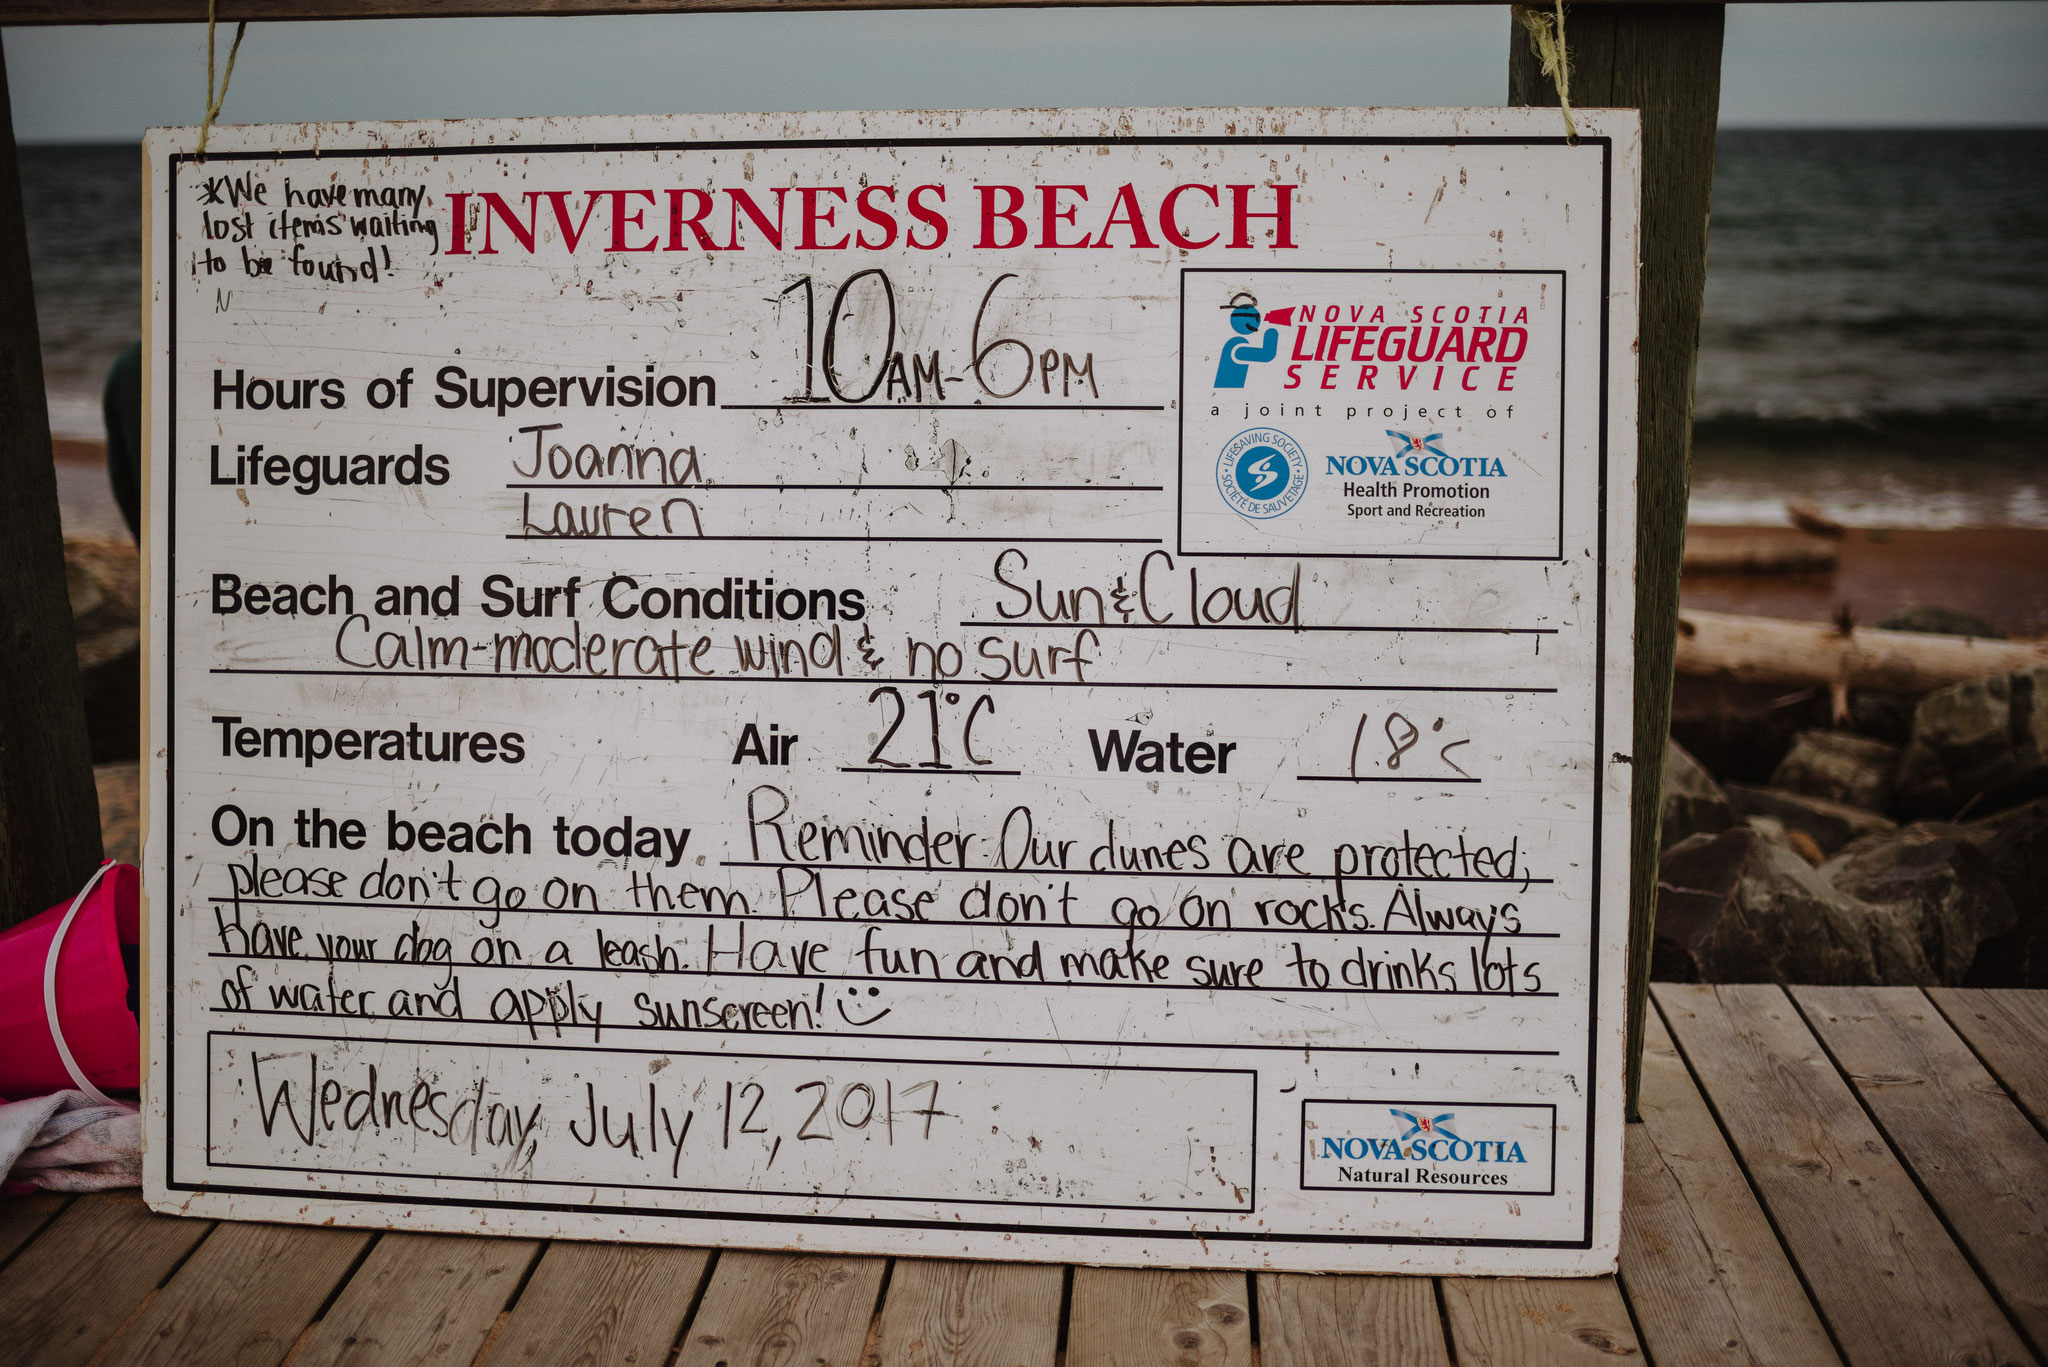 *We have many
lost items waiting
to be found!
INVERNESS BEACH
Hours of Supervision 10AM-6PM
Lifeguards Joanna
Lauren
NOVA SCOTIA
LIFEGUARD
SERVICE
a joint project of
LIFESAVING SOCIETY • SOCIÉTÉ DE SAUVETAGE •
NOVA SCOTIA
Health Promotion
Sport and Recreation
Beach and Surf Conditions Sun & Cloud
Calm-moderate wind & no surf
Temperatures Air 21°C Water 18°C
On the beach today Reminder: Our dunes are protected,
please don't go on them. Please don't go on rocks. Always
have your dog on a leash. Have fun and make sure to drinks lots
of water and apply sunscreen!
Wednesday, July 12, 2017
NOVA SCOTIA
Natural Resources